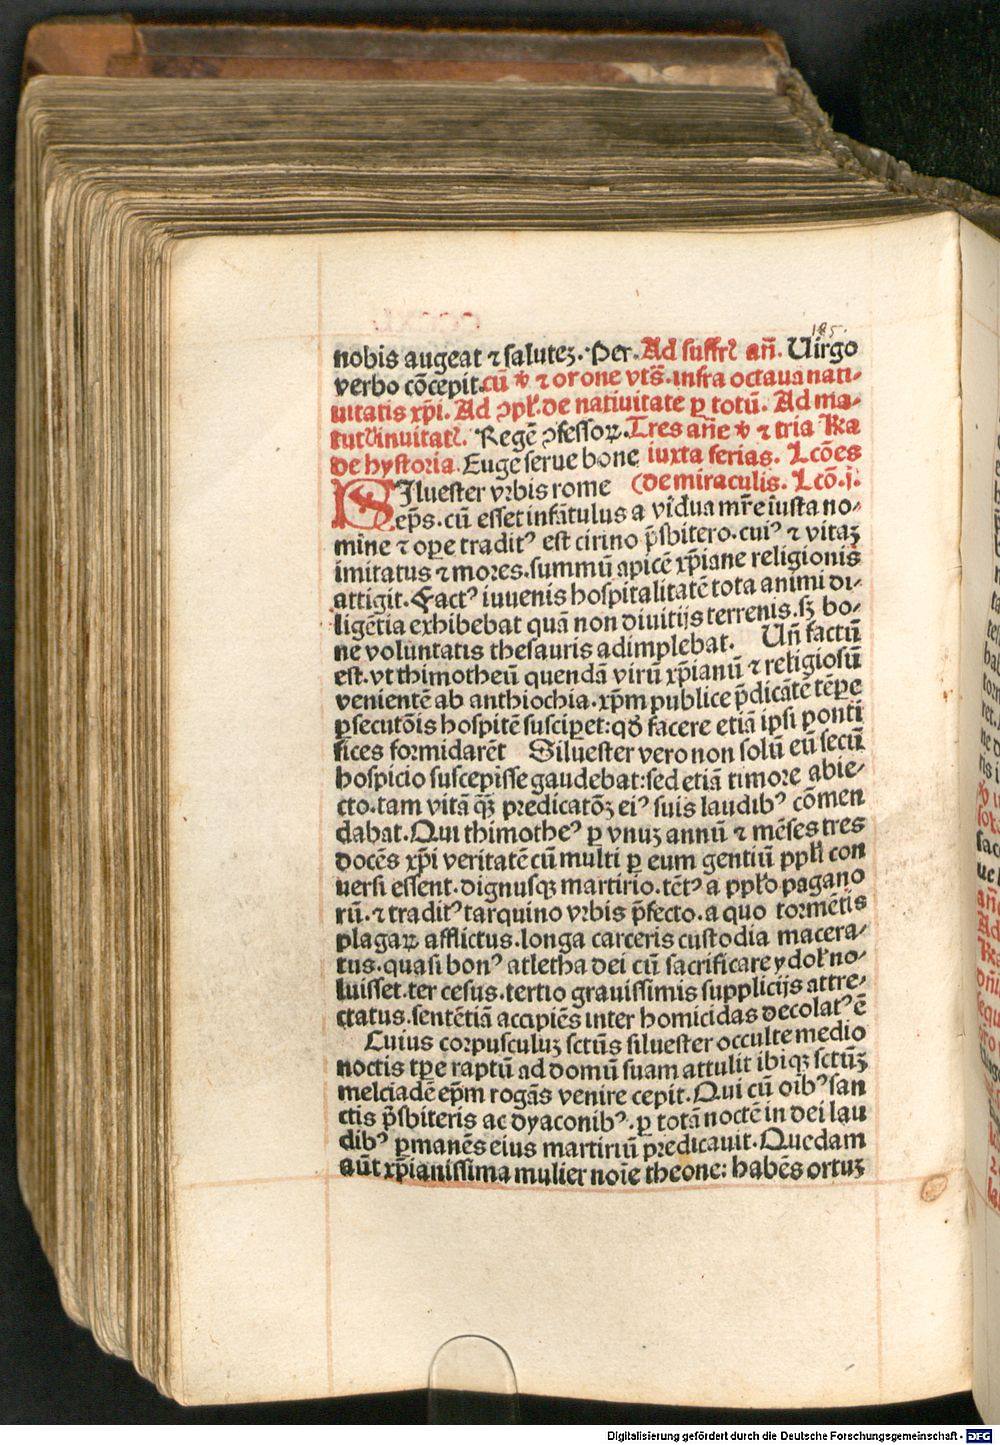 185.
nobis augeat ⁊ saluteꝫ. Per. Ad suffrͥ an̄. Uirgo
verbo cōcepit. cū ꝟ ⁊ orone vts̄. infra octaua nati⸗
uitatis xp̄i. Ad ↄpl̄. de natiuitate ꝑ totū. Ad ma⸗
tut̉ inuitat̉. Regē ↄfessoꝝ. Tres an̄e ꝟ ⁊ tria Ra
de hystoria. Euge serue bone iuxta ferias. Lcōes
SIluester vrbis rome (de miraculis. Lcō. j.
ep̄s. cū esset infātulus a vidua mr̄e iusta no⸗
mine ⁊ oꝑe traditꝰ est cirino p̄sbitero. cuiꝰ ⁊ vitaꝫ
imitatus ⁊ mores. summū apicē xp̄iane religionis
attigit. Factꝰ iuuenis hospitalitatē tota animi di⸗
ligētia exhibebat quā non diuitijs terrenis. sꝫ bo⸗
ne voluntatis thesauris adimplebat. Un̄ factū
est. vt thimotheū quendā virū xp̄ianū ⁊ religiosū
venientē ab anthiochia. xp̄m publice p̄dicātē tēꝑe
ꝑsecutōis hospitē susciperet: qd̄ facere etiā ipsi ponti
fices formidarēt Siluester vero non solū eū secū
hospicio suscepisse gaudebat: sed etiā timore abie⸗
cto. tam vitā qꝫ̄ predicatōꝫ eiꝰ suis laudibꝰ cōmen
dabat. Qui thimotheꝰ ꝑ vnuꝫ annū ⁊ mēses tres
docēs xp̄i veritatē cū multi ꝑ eum gentiū ppl̄i con
uersi essent. dignusqꝫ martirio. tētꝰ a ppl̄o pagano
rū. ⁊ traditꝰ tarquino vrbis p̄fecto. a quo tormētis
plagaꝝ afflictus. longa carceris custodia macera⸗
tus. quasi bonꝰ atletha dei cū sacrificare ydol̄ no⸗
luisset. ter cesus. tertio grauissimis supplicijs attre⸗
ctatus. sentētiā accipiēs inter homicidas decolatꝰ ē
Cuius corpusculuꝫ sctūs siluester occulte medio
noctis tꝑe raptū ad domū suam attulit ibiqꝫ sctūꝫ
melciadē ep̄m rogās venire cepit. Qui cū oībꝰ san
ctis p̄sbiteris ac dyaconibꝰ. ꝑ totā noctē in dei lau
dibꝰ ꝑmanēs eius martiriū predicauit. Quedam
aūt xp̄ianissima mulier noīe theone: habēs ortuꝫ
Digitalisierung gefördert durch die Deutsche Forschungsgemeinschaft - DFG